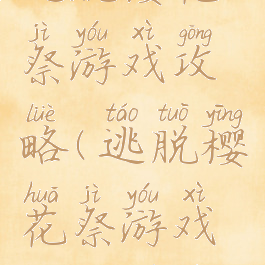 jì yóu xì gōng
祭游戏攻
lüè táo tuō yīng
略(逃脱樱
huā jì yóu xì
花祭游戏